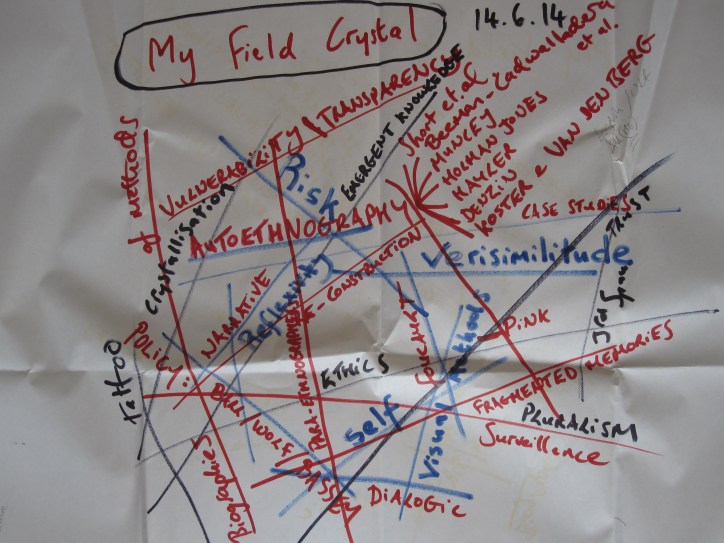 My Field Crystal
14.6.14
VULNERABILITY
TRANSPARENCY
EMERGENT KNOWLEDGE
Short et al
Beeman-Cadwallader et al.
MUNCEY
HOLMAN JONES
KAYLER
DENZIN
KOSTER & VAN DEN BERG
of METHODS
Crystallisation
Risk
AUTOETHNOGRAPHY
CASE STUDIES
TRUST
Verisimilitude
Reflexivity
NARRATIVE
CONSTRUCTION
POLICY:
Tattoo
PARA-ETHNOGRAPHER
ETHICS
Visual Methods
PINK
FRAGMENTED MEMORIES
PLURALISM
Surveillance
Self
DIALOGIC
Biographies